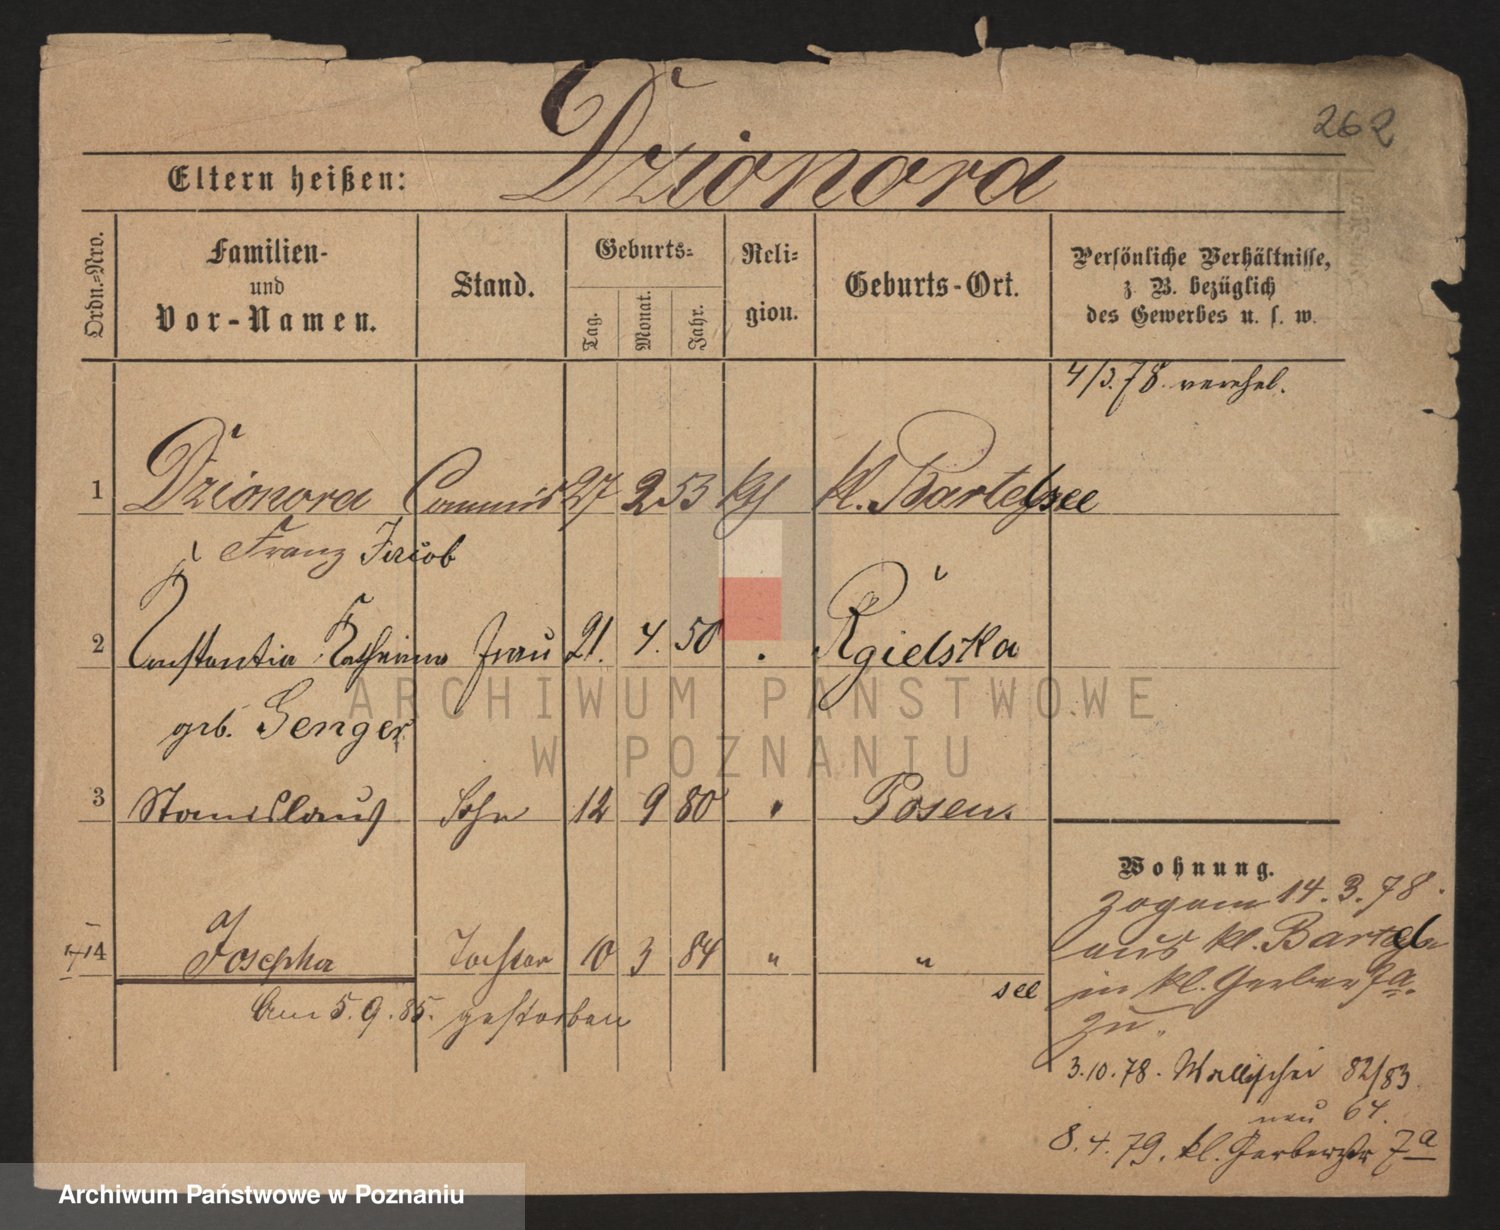 262
Dzionora
Eltern heißen:
Ordn.=Nro.
Familien-
und
Vor-Namen.
Stand.
Geburts=
Tag.
Monat.
Jahr.
Reli=
gion.
Geburts-Ort.
Persönliche Verhältnisse,
z. B. bezüglich
des Gewerbes u. s. w.
4/3.78. verehel.
1 Dzionora Commis 27 2 53 kth kl. Bartelsee
Franz Jacob
2 Constantia Katharina Frau 21. 4. 50 . Rgielska
geb. Genger
3 Stanislaus Sohn 12 9 80 " Posen.
4 Josepha Tochter 10 3 84 " "
Am 5.9.85. gestorben
Wohnung.
Zogam 14.3.78.
aus kl. Bartel
see
in kl. Gerber 7a.
zu.
3.10.78. Wallischei 82/83
neu 64.
8.4.79. kl. Gerberstr 7a
ARCHIWUM PAŃSTWOWE
W POZNANIU
Archiwum Państwowe w Poznaniu